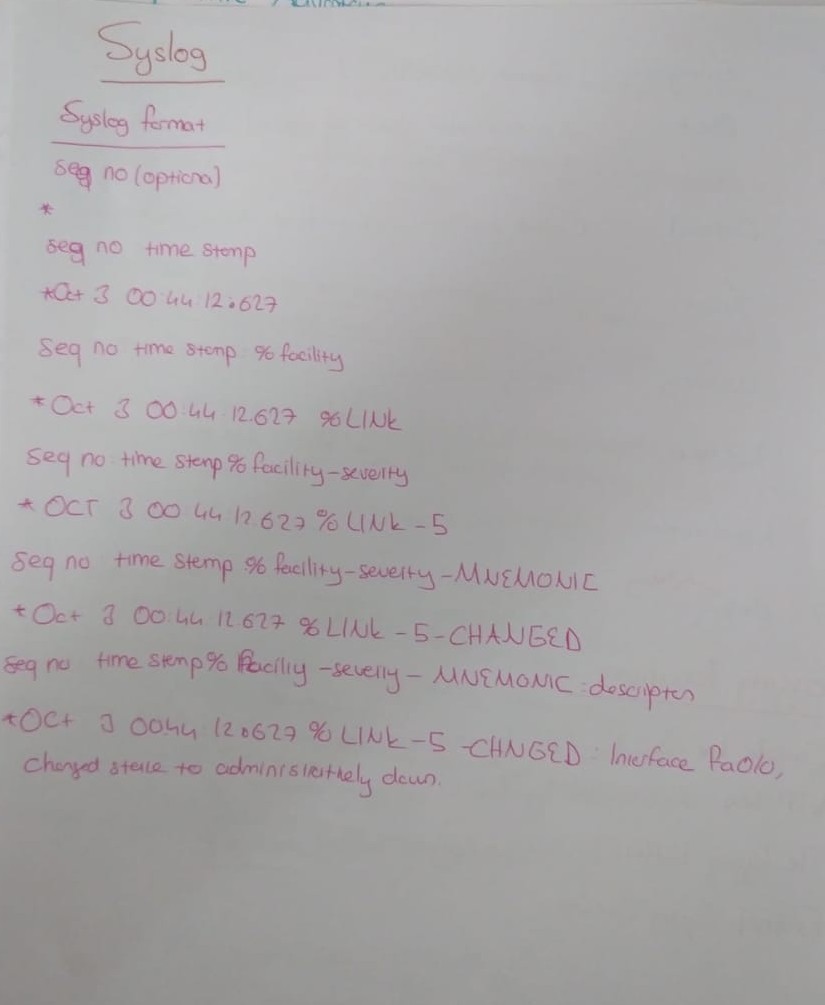 Syslog
Syslog format
seq no (optiona)
*
seq no time stemp
*Oct 3 00:44 12.627
Seq no time stemp % facility
*Oct 3 00:44 12.627 %LINK
Seq no time stemp % facility-severity
* OCT 3 00 44 12.627 % LINK -5
Seq no time stemp % facility-severity-MNEMONIC
*Oct 3 00:44 12.627 %LINK -5-CHANGED
Seq no time stemp % Facility -severity - MNEMONIC : descripten
*OCt 3 0044 12.627 % LINK -5 -CHNGED : Interface Fa0/0,
changed state to administrively down.